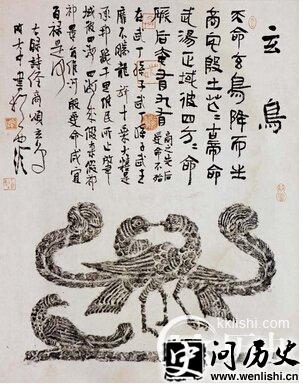 玄鳥
天命玄鳥降而生
商宅殷土芒芒古帝命
武湯正域彼四方方命
厥后奄有九有商之先后受命不殆
在武丁孫子武丁孫子武王
靡不勝龍旂十乘大糦是
承邦畿千里維民所止肇
域彼四海四海來假來假祁
祁景員維河殷受命咸宜
百祿是何
詩經商頌玄鳥
kklishi.com
史问历史
www.wenlishi.cn